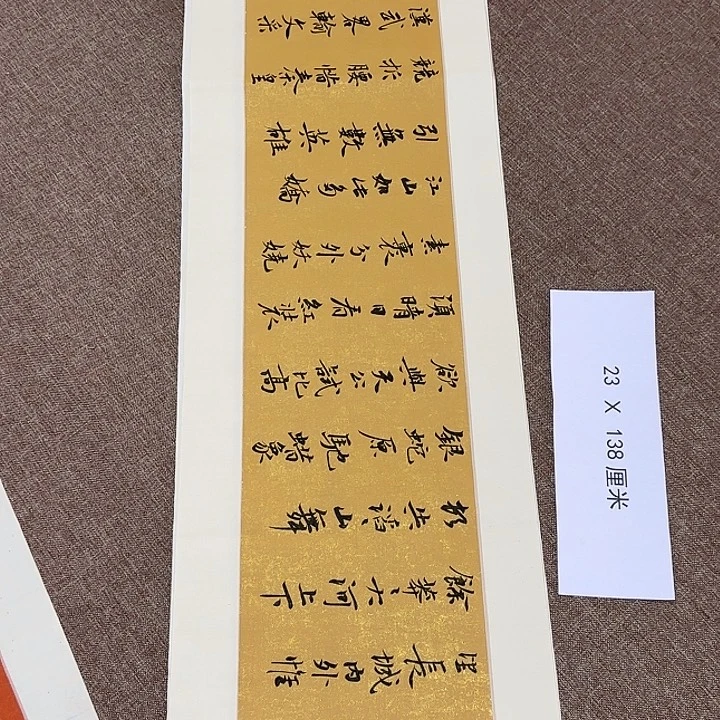 望長城内外惟
餘莽々大河上下
頓失滔々山舞
銀蛇原馳蠟象
欲與天公試比高
須晴日看紅裝
素裹分外妖嬈
江山如此多嬌
引無數英雄
競折腰惜秦皇
漢武畧輸文采
23 X 138厘米